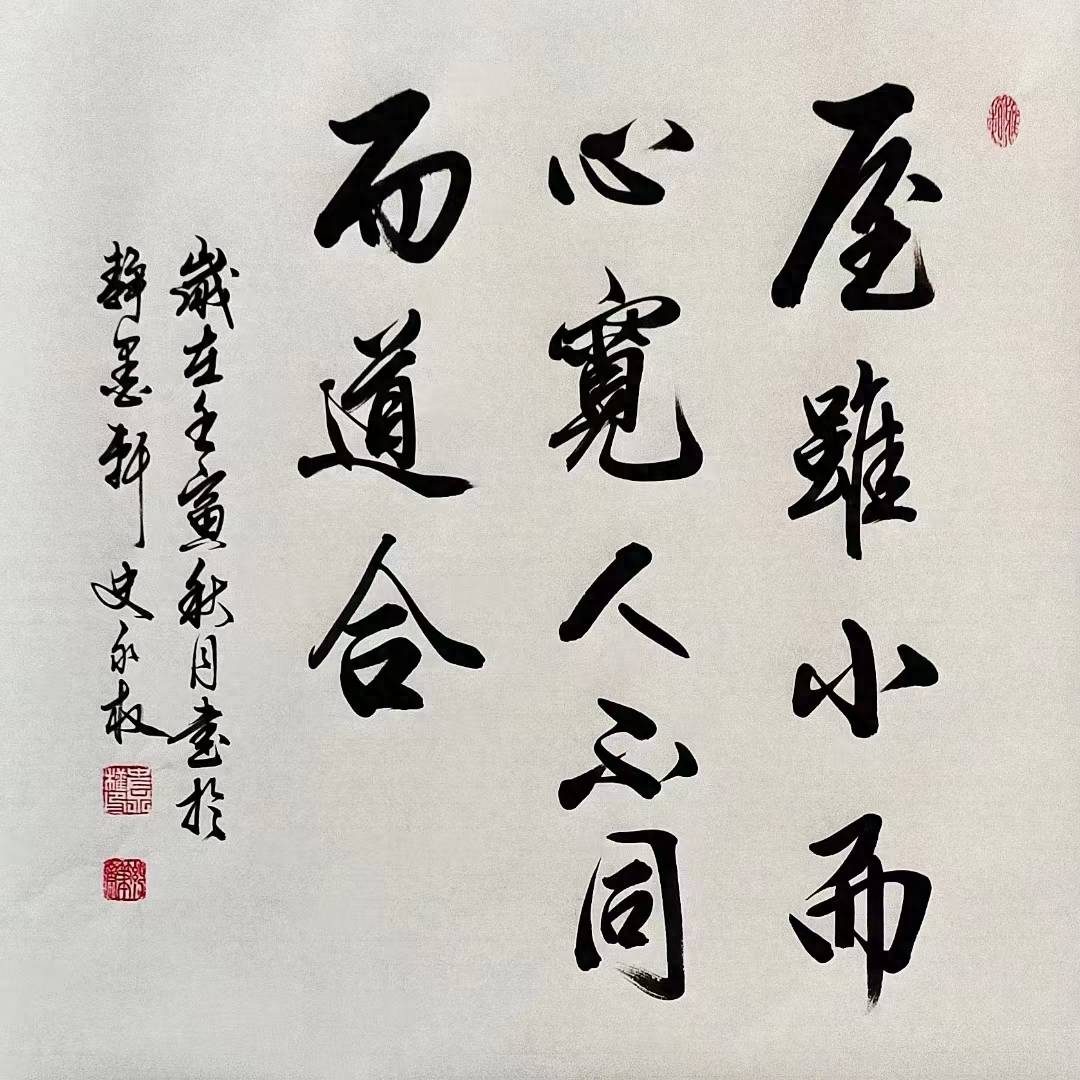 屋雖小而
心寬人不同
而道合
歲在壬寅秋月書於
靜墨軒史永權